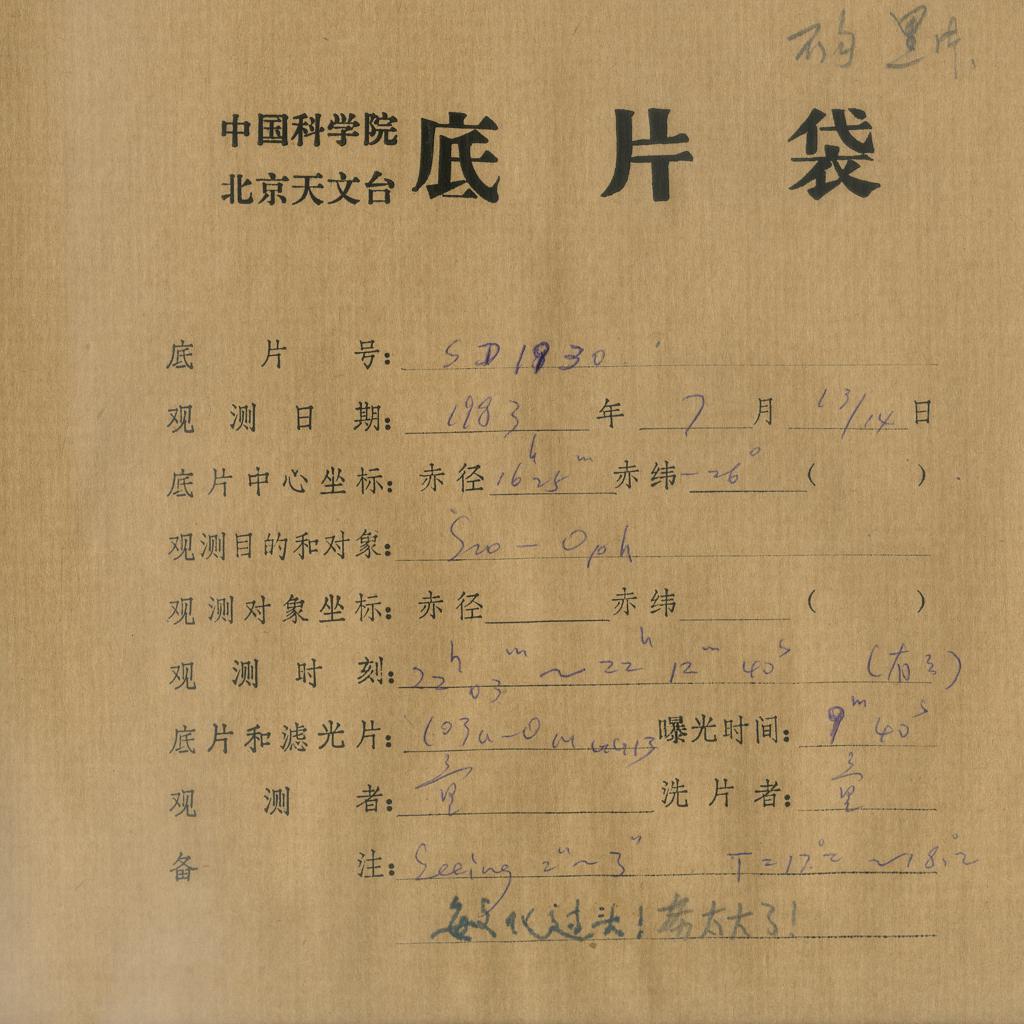 中国科学院
北京天文台
底片袋
底片号: SD1930
观测日期: 1983 年 7 月 13/14 日
底片中心坐标: 赤径 16h25m 赤纬 -26° ( )
观测目的和对象: Sco - Oph
观测对象坐标: 赤径 赤纬 ( )
观测时刻: 22h03m ~ 22h12m40s
底片和滤光片: 103a-O 曝光时间: 9m40s
观测者: 洗片者:
备注: Seeing 2"~3" T=17.°2 ~18.°2
过头! 太大了!